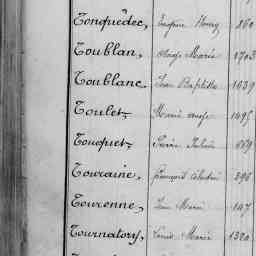 Tonquédec, Eugène Henry 860
Toublan, Marie 1703
Toublanc, Jean Baptiste 1639
Toulet, Marie 1495
Touquet, 559
Touraine, François Célestin 396
Tourenne, Jean Marie 147
Tournatory, Louis Marie 1320